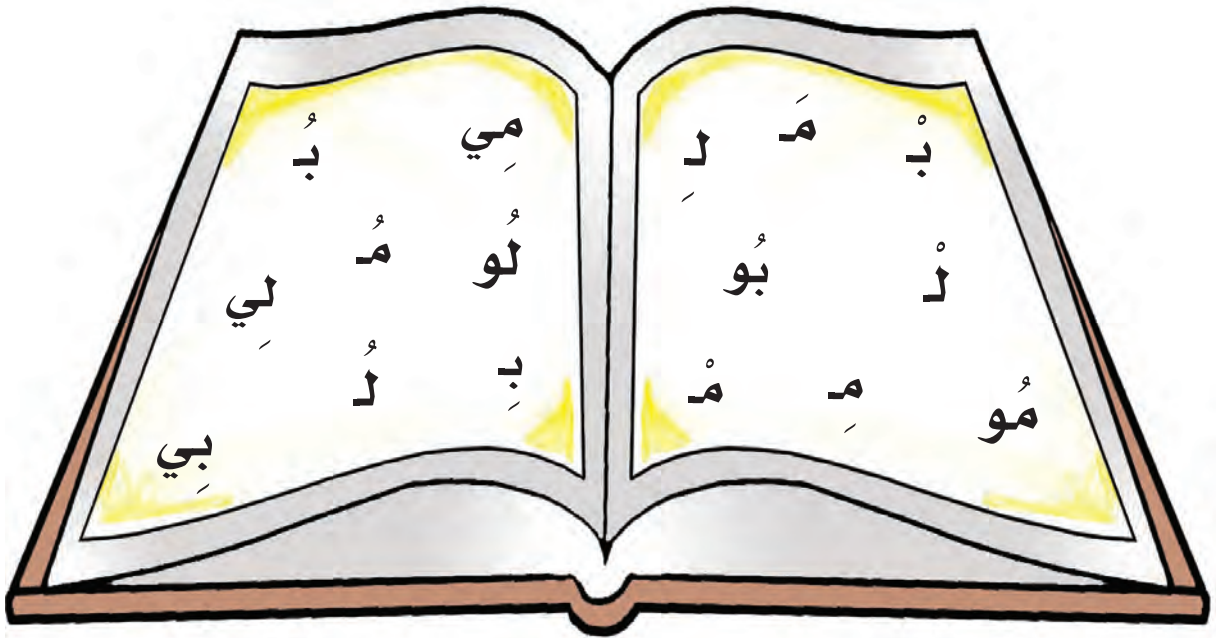 بْـ مَـ لِـ
لْـ بُو
مُو مِـ مْـ
مِي بُـ
لُو مُـ لِي
بِـ لُـ
بِي